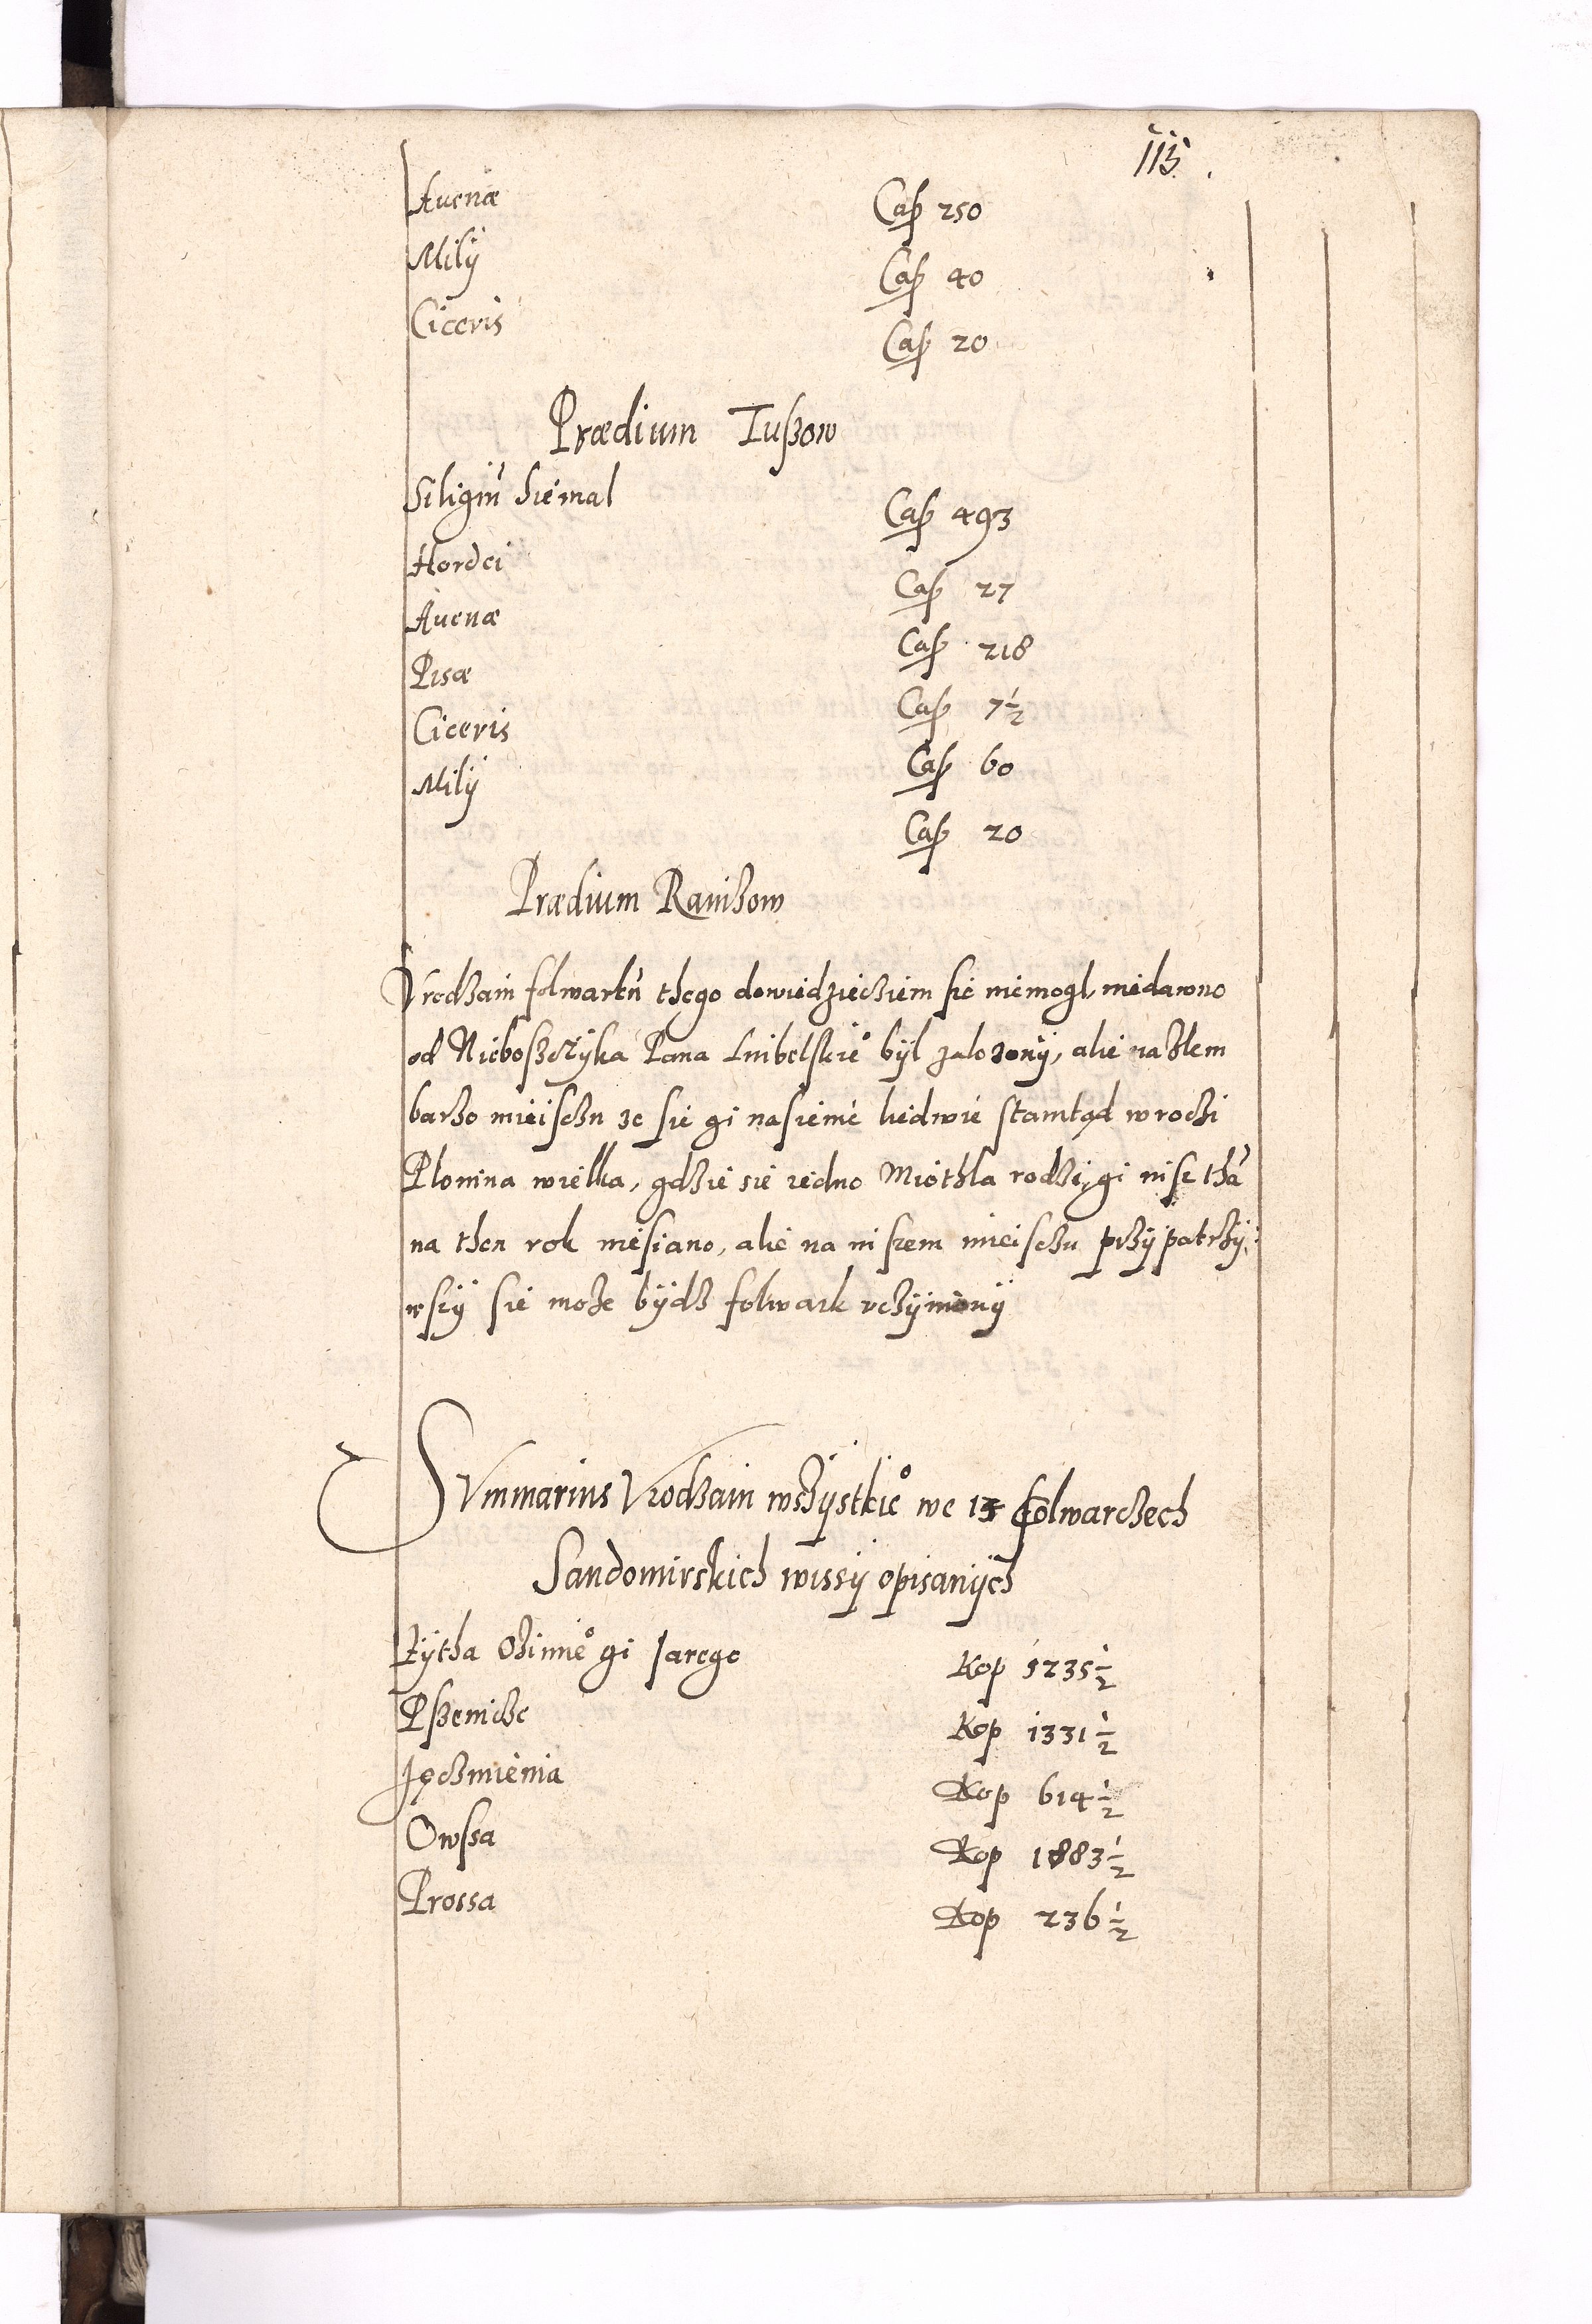 115
Auenæ Cap 250
Milij Cap 40
Ciceris Cap 20
Prædium Tuszow
Siligin hiemal Cap 493
Hordei Cap 27
Auenæ Cap 218
Pisæ Cap 7½
Ciceris Cap 60
Milij Cap 20
Prædium Ranizow
Vrodzain folwarku thego dowiedziecziem sie niemogl, niedawno
od Nieboszczyka Pana byl zalozony, alie na zlem
barzo mieisczu ze sie gi nasienie liedwie stamtąd wroczi
Plonina wielka, gdzie sie iedno Miothla rodzi, gi nisz tha
na then rok niesiano, alie na inszem mieisczu przypatrzy:
wszy sie moze bydz folwark vczyniony
SVmmarius Vrodzain wszystkie° we 13 folwarczech
Sandomirskich wissy opisanych
Zytha Ozinne° gi Jarego Kop 5235½
Pszenicze Kop 1331½
Jęczmienia Kop 614½
Owssa Kop 1883½
Prossa Kop 236½